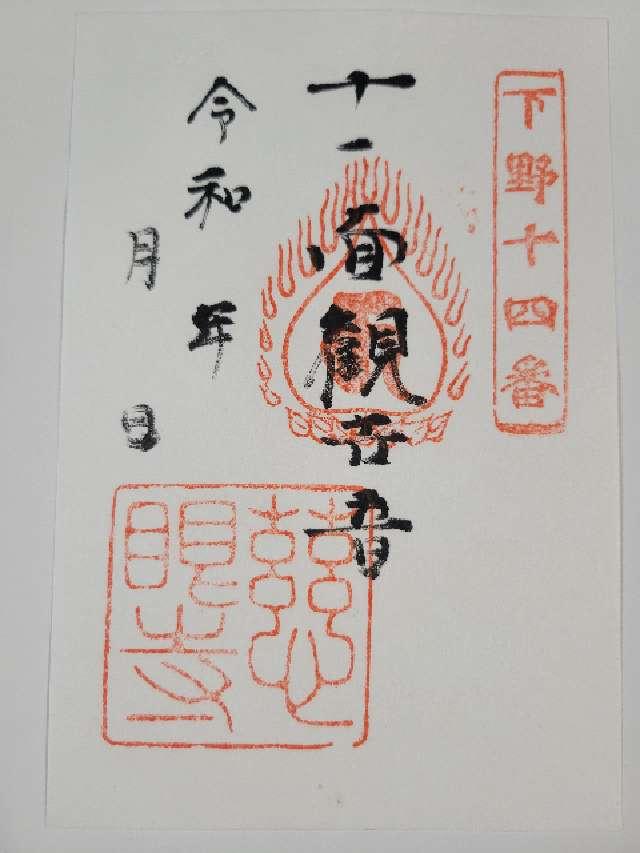 下野十四番
十一面観世音
令和 年
月 日
慈眼寺